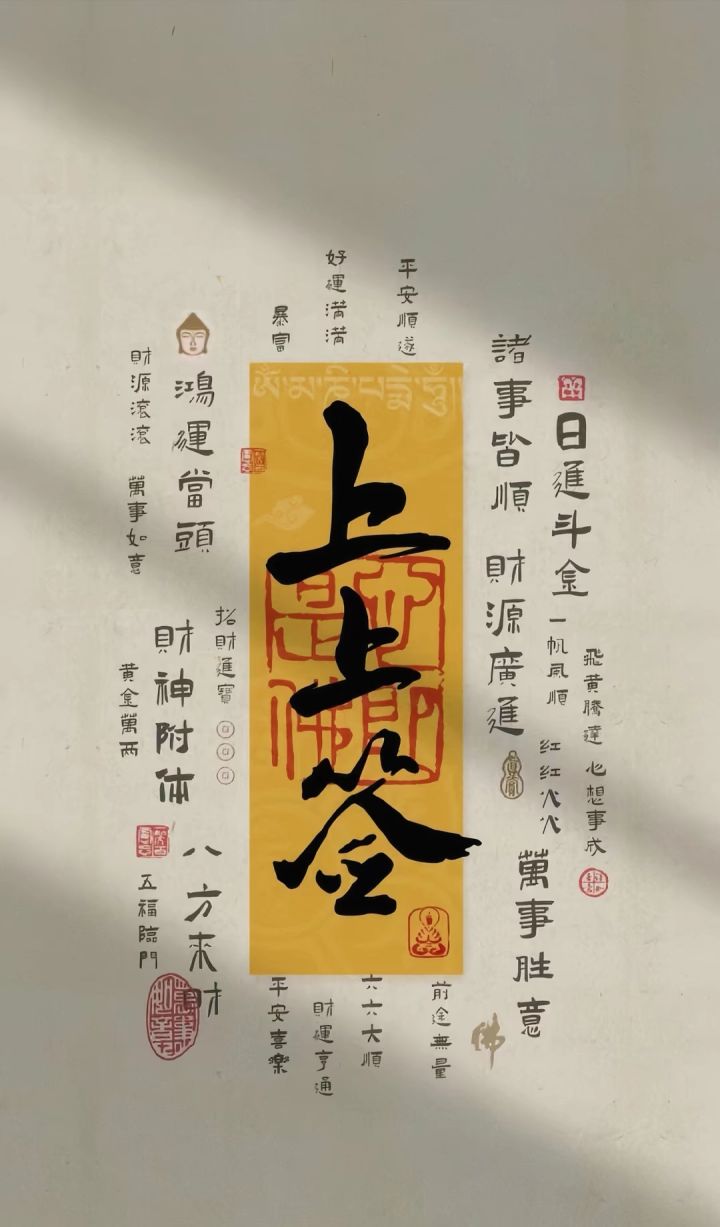 好運满满
平安順遂
暴富
諸事皆順
日進斗金
財源滾滾
鴻運當頭
萬事如意
上上签
ༀ་མ་ཎི་པདྨེ་ཧཱུྃ
心即是佛
財源廣進
一帆風順
飛黄騰達
招財進寶
財神附体
黄金萬两
红红火火
心想事成
八方来財
五福臨門
萬事胜意
平安喜樂
財運亨通
六六大順
前途無量
佛